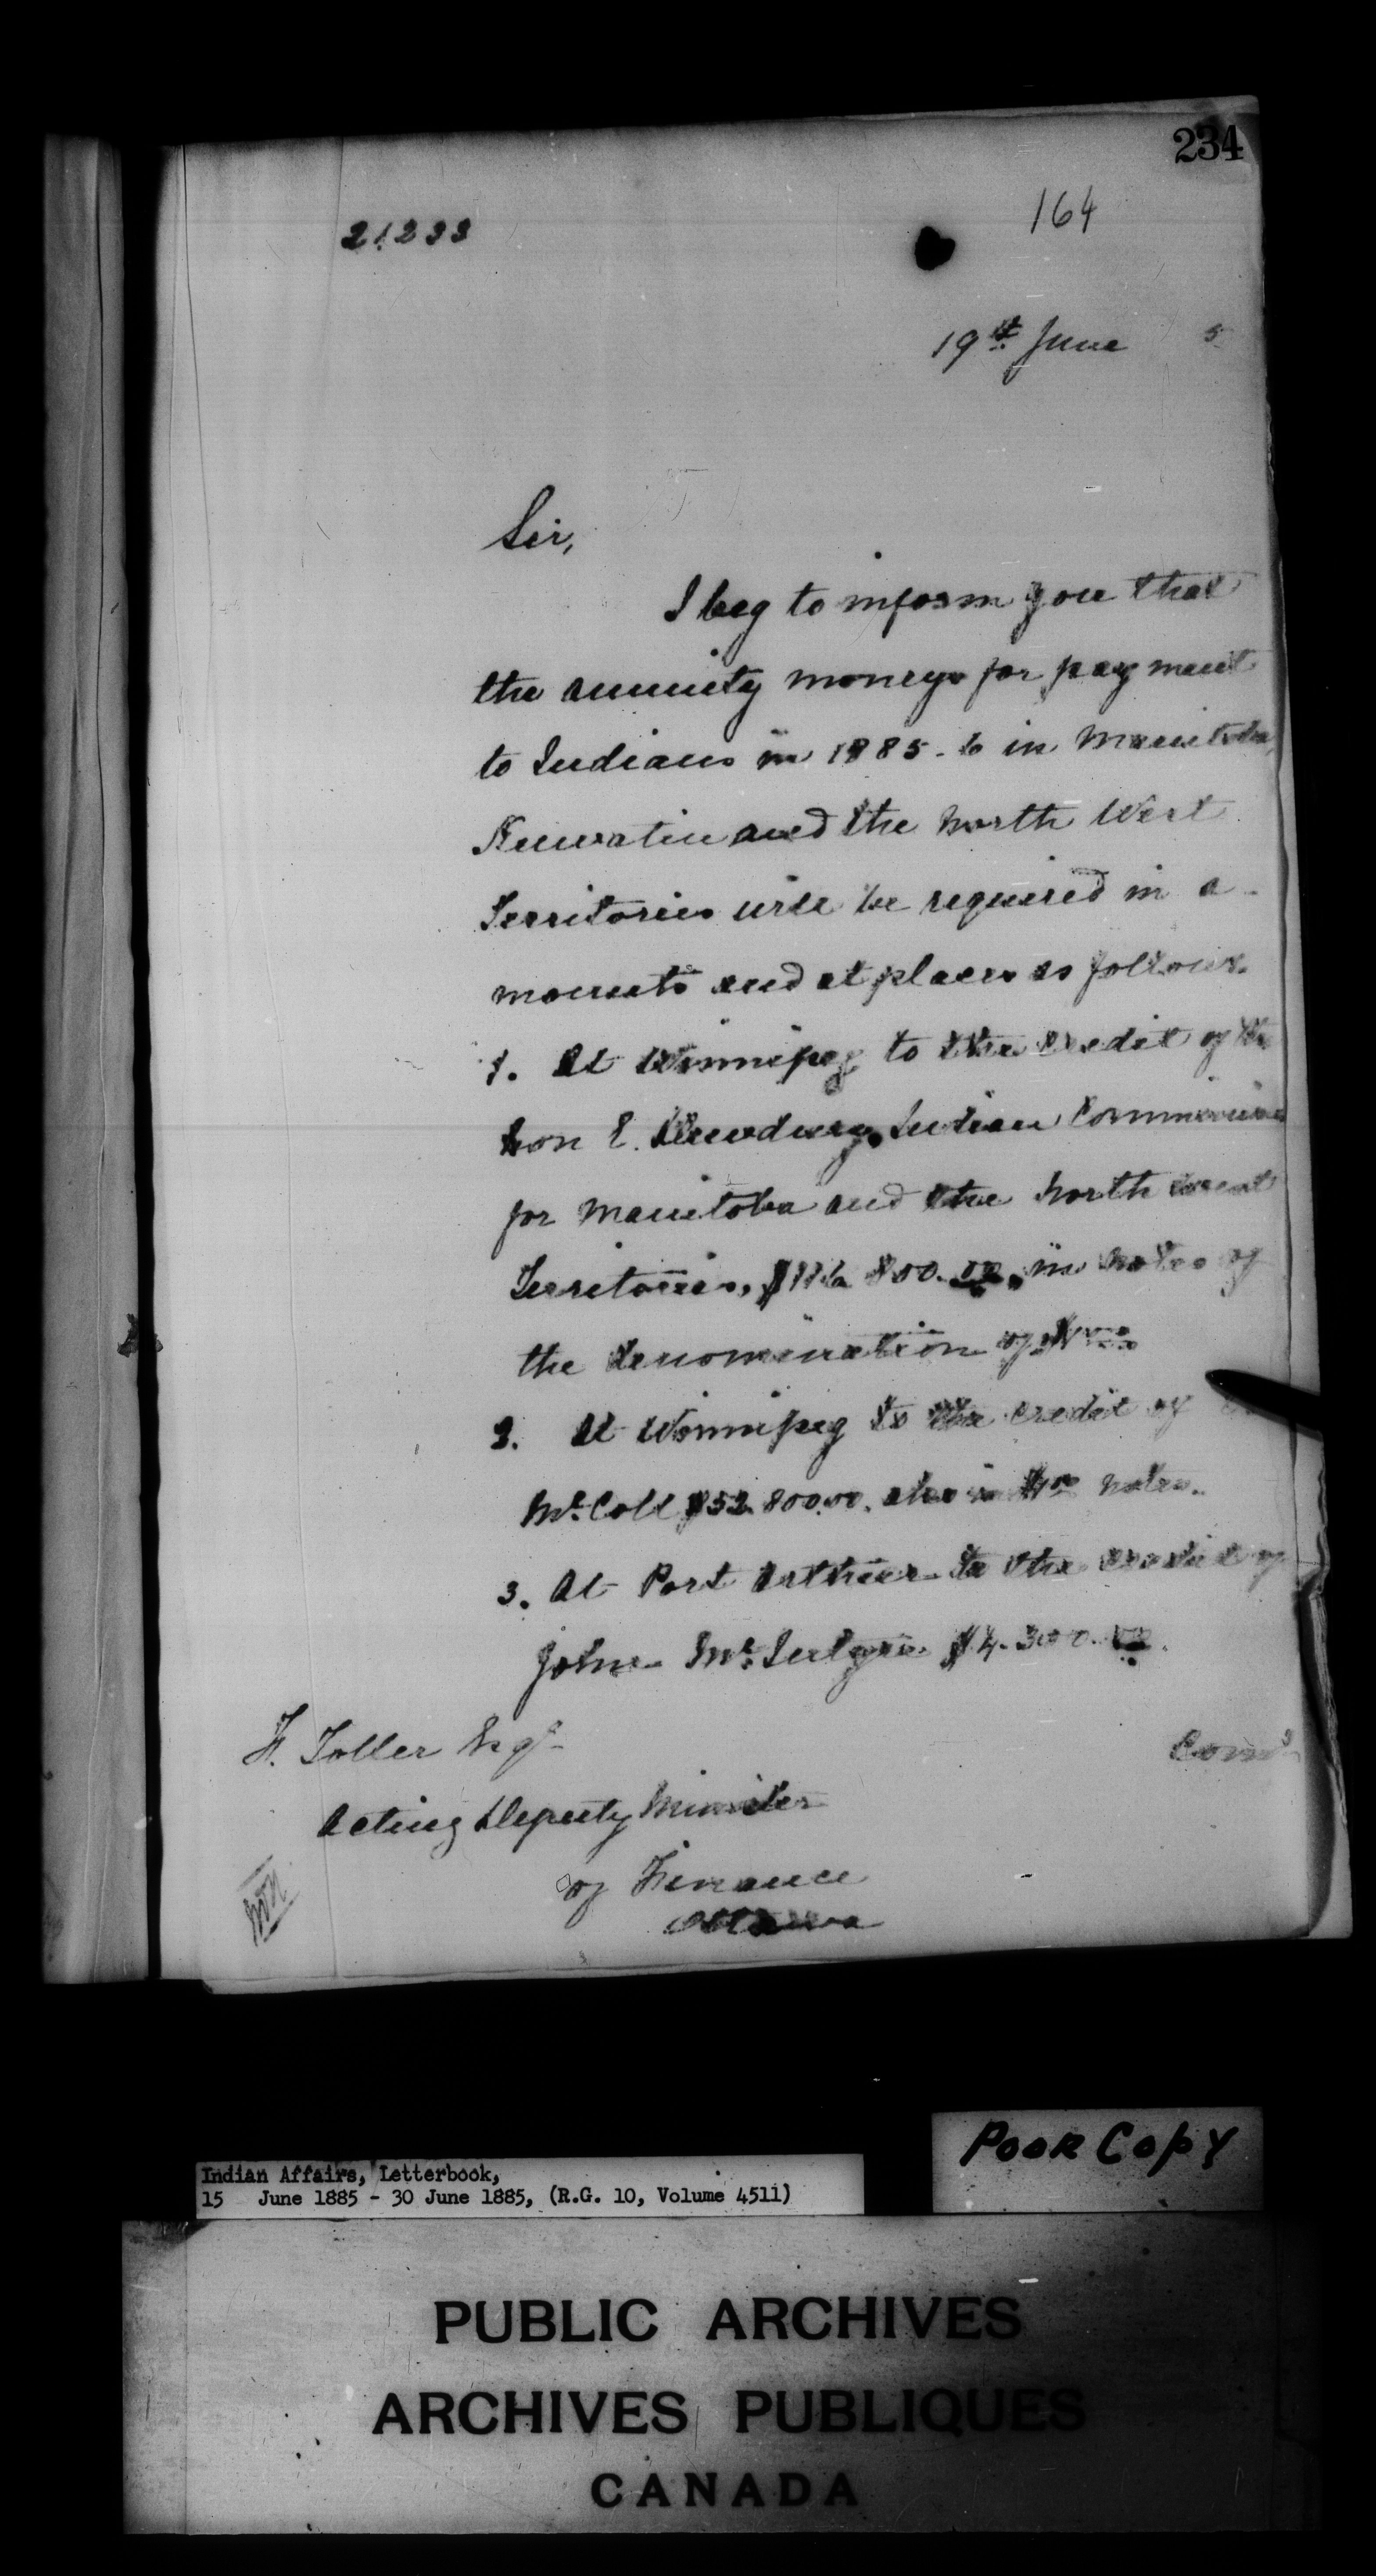 234
164
21233
19th June 5
Sir,
I beg to inform you that
the annuity moneys for payment
to Indians in 1885-6 in Manitoba,
Keewatin and the North West
Territories will be required in a-
mounts and at places as follows.
1. At Winnipeg to the credit of the
Hon E. Dewdney, Indian Commissioner
for Manitoba and the North West
Territories, 800.00, in notes of
the denomination of
2. At Winnipeg to the credit of
McColl $52.800.00. also in notes.
3. At Port Arthur to the credit of
John McIntyre $4.300.00.
F. Toller Esqr
Acting Deputy Minister
of Finance
Ottawa
Indian Affairs, Letterbook,
15 June 1885 - 30 June 1885, (R.G. 10, Volume 4511)
POOR COPY
PUBLIC ARCHIVES
ARCHIVES PUBLIQUES
CANADA